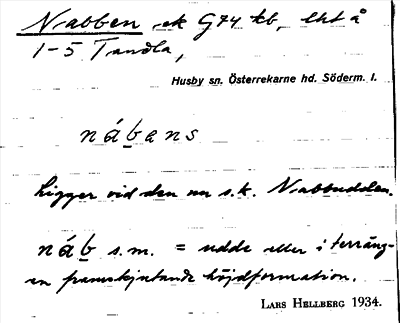 Nabben ek G74 kb, lht å
1-5 Tandla,
Husby sn. Österrekarne hd. Söderm. l.
nábans
Ligger vid den nu s.k. Nabbudden.
náb s.m. = udde eller i terräng-
en framskjutande höjdformation.
LARS HELLBERG 1934.